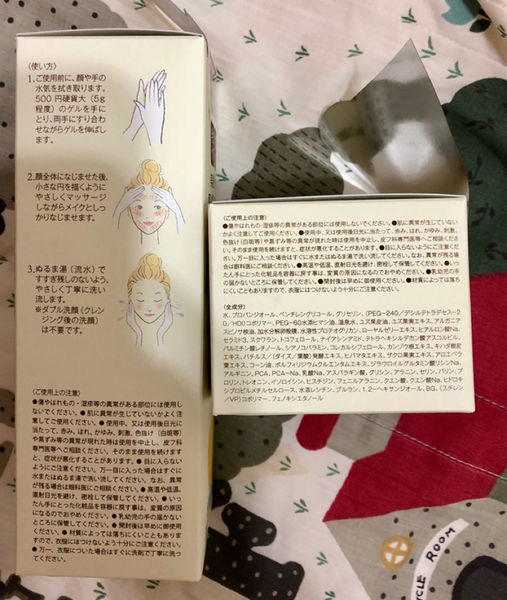 〈使い方〉
1.ご使用前に、顔や手の
水気を拭き取ります。
500円硬貨大(5g
程度)のゲルを手に
とり、両手にすり合わ
せながらゲルを伸ばし
ます。
2.顔全体になじませた後、
小さな円を描くように
やさしくマッサージ
しながらメイクとしっ
かりなじませます。
3.ぬるま湯(流水)で
すすぎ残しのないよう、
やさしく丁寧に洗い
流します。
※ダブル洗顔(クレン
ジング後の洗顔)
は不要です。
〈ご使用上の注意〉
●傷やはれもの・湿疹等の異常がある部位には使用し
ないでください。●肌に異常が生じていないかよく注意
して使用してください。●使用中、又は使用後日光に
当たって、赤み、はれ、かゆみ、刺激、色抜け(白斑等)
や黒ずみ等の異常が現れた時は使用を中止し、皮フ科
専門医等へご相談ください。そのまま使用を続けます
と、症状が悪化することがあります。●目に入らない
ようにご注意ください。万一目に入った場合はすぐに
水またはぬるま湯で洗い流してください。なお、異常
が残る場合は眼科医にご相談ください。●高温や低温、
直射日光を避け、密栓して保管してください。●いっ
たん手にとった化粧品を容器に戻す事は、変質の原因
になるのでおやめください。●乳幼児の手の届かない
ところに保管してください。●開封後は早めに御使用
ください。●材質によっては落ちにくいこともありま
すので、衣服にはつけないよう十分にご注意ください。
●万一、衣服についた場合はすぐに洗剤で丁寧に洗っ
てください。
〈ご使用上の注意〉
●傷やはれもの・湿疹等の異常がある部位には使用しないでください。●肌に異常が生じていない
かよく注意してご使用ください。●使用中、又は使用後日光に当たって、赤み、はれ、かゆみ、刺激、
色抜け(白斑等)や黒ずみ等の異常が現れた時は使用を中止し、皮フ科専門医等へご相談くださ
い。そのまま使用を続けますと、症状が悪化することがあります。●目に入らないようにご注意くだ
さい。万一目に入った場合はすぐに水またはぬるま湯で洗い流してください。なお、異常が残る場合
は眼科医にご相談ください。●高温や低温、直射日光を避け、密栓して保管してください。●いっ
たん手にとった化粧品を容器に戻す事は、変質の原因になるのでおやめください。●乳幼児の手
の届かないところに保管してください。●開封後は早めに御使用ください。●材質によっては落ち
にくいこともありますので、衣服にはつけないよう十分にご注意ください。
〈全成分〉
水、プロパンジオール、ペンチレングリコール、グリセリン、(PEG-240/デシルテトラデセス-2
0/HDI)コポリマー、PEG-60水添ヒマシ油、温泉水、ユズ果皮油、ユズ果実エキス、アルガニア
スピノサ核油、加水分解核酸、水溶性プロテオグリカン、ローヤルゼリーエキス、ヒアルロン酸Na、
セラミド3、スクワラン、トコフェロール、ナイアシンアミド、テトラヘキシルデカン酸アスコルビル、
パルミチン酸レチノール、シアノコバラミン、コレカルシフェロール、カンゾウ根エキス、キハダ樹皮
エキス、バチルス/(ダイズ/葉酸)発酵エキス、ヒバマタエキス、ザクロ果実エキス、アロエベラ
葉エキス、コーン油、ポルフィリジウムクルエンタムエキス、ジラウロイルグルタミン酸リシンNa、
アルギニン、PCA、PCA-Na、乳酸Na、アスパラギン酸、グリシン、アラニン、セリン、バリン、プ
ロリン、トレオニン、イソロイシン、ヒスチジン、フェニルアラニン、クエン酸、クエン酸Na、ヒドロキ
シプロピルメチルセルロース、水添レシチン、プルラン、1,2-ヘキサンジオール、BG、(スチレン
/VP)コポリマー、フェノキシエタノール
CYCLE ROOM